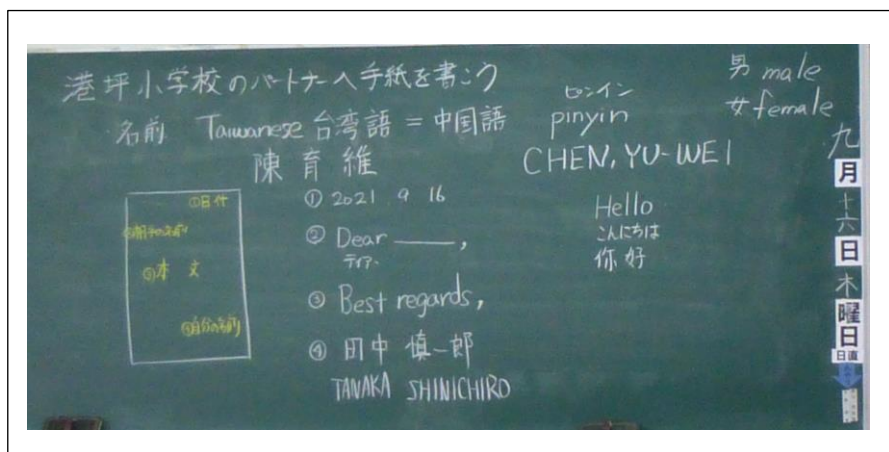 港坪小学校のパートナーへ手紙を書こう
名前 Taiwanese 台湾語 = 中国語
陳育維
ピンイン
pinyin
CHEN, YU-WEI
男 male
女 female
①日付
②相手の名前
③本文
④自分の名前
① 2021 9 16
② Dear ,
ディア
③ Best regards,
④ 田中 慎一郎
TANAKA SHINICHIRO
Hello
こんにちは
你好
九
月
十六
日
木
曜
日
日直